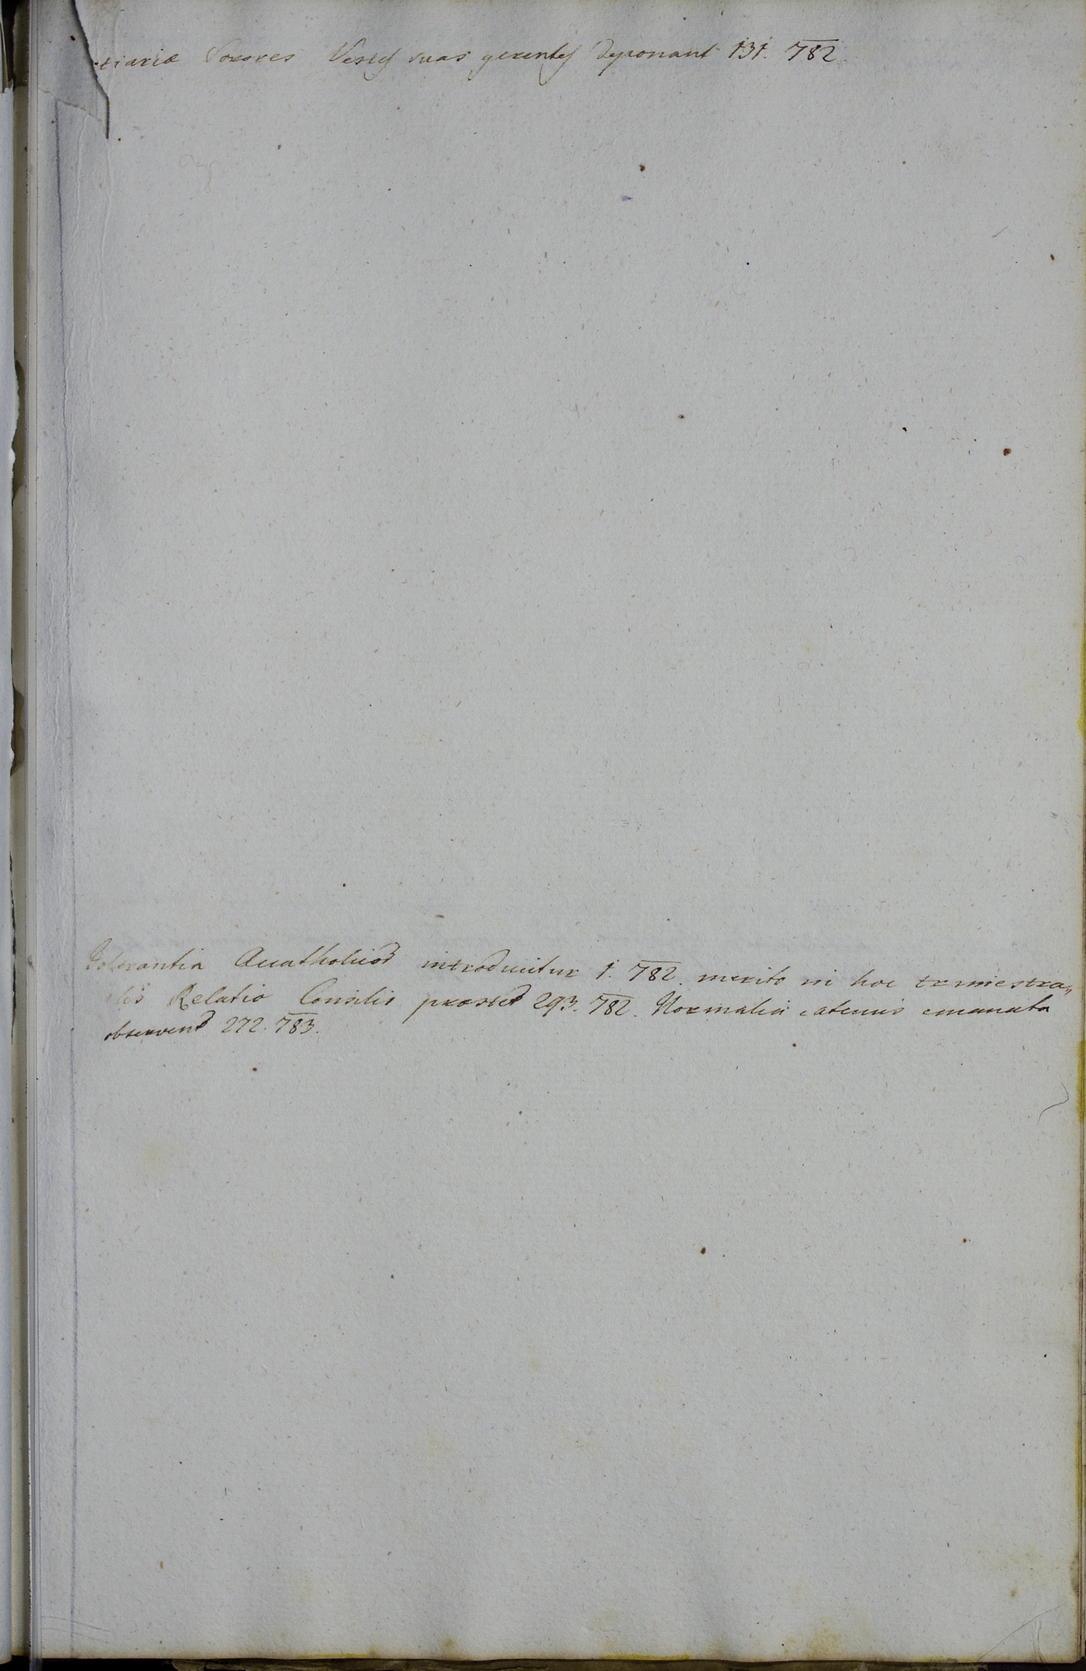 tiariæ Sorores Vestes suas gerentes deponant 131. 782.
Tolerantia Acatholicor introducitur 1. 782. merito in hoc trimestra„
lis Relatio Consilio præstet 293. 782. Normalia eatenus emanata
observent 272. 783.